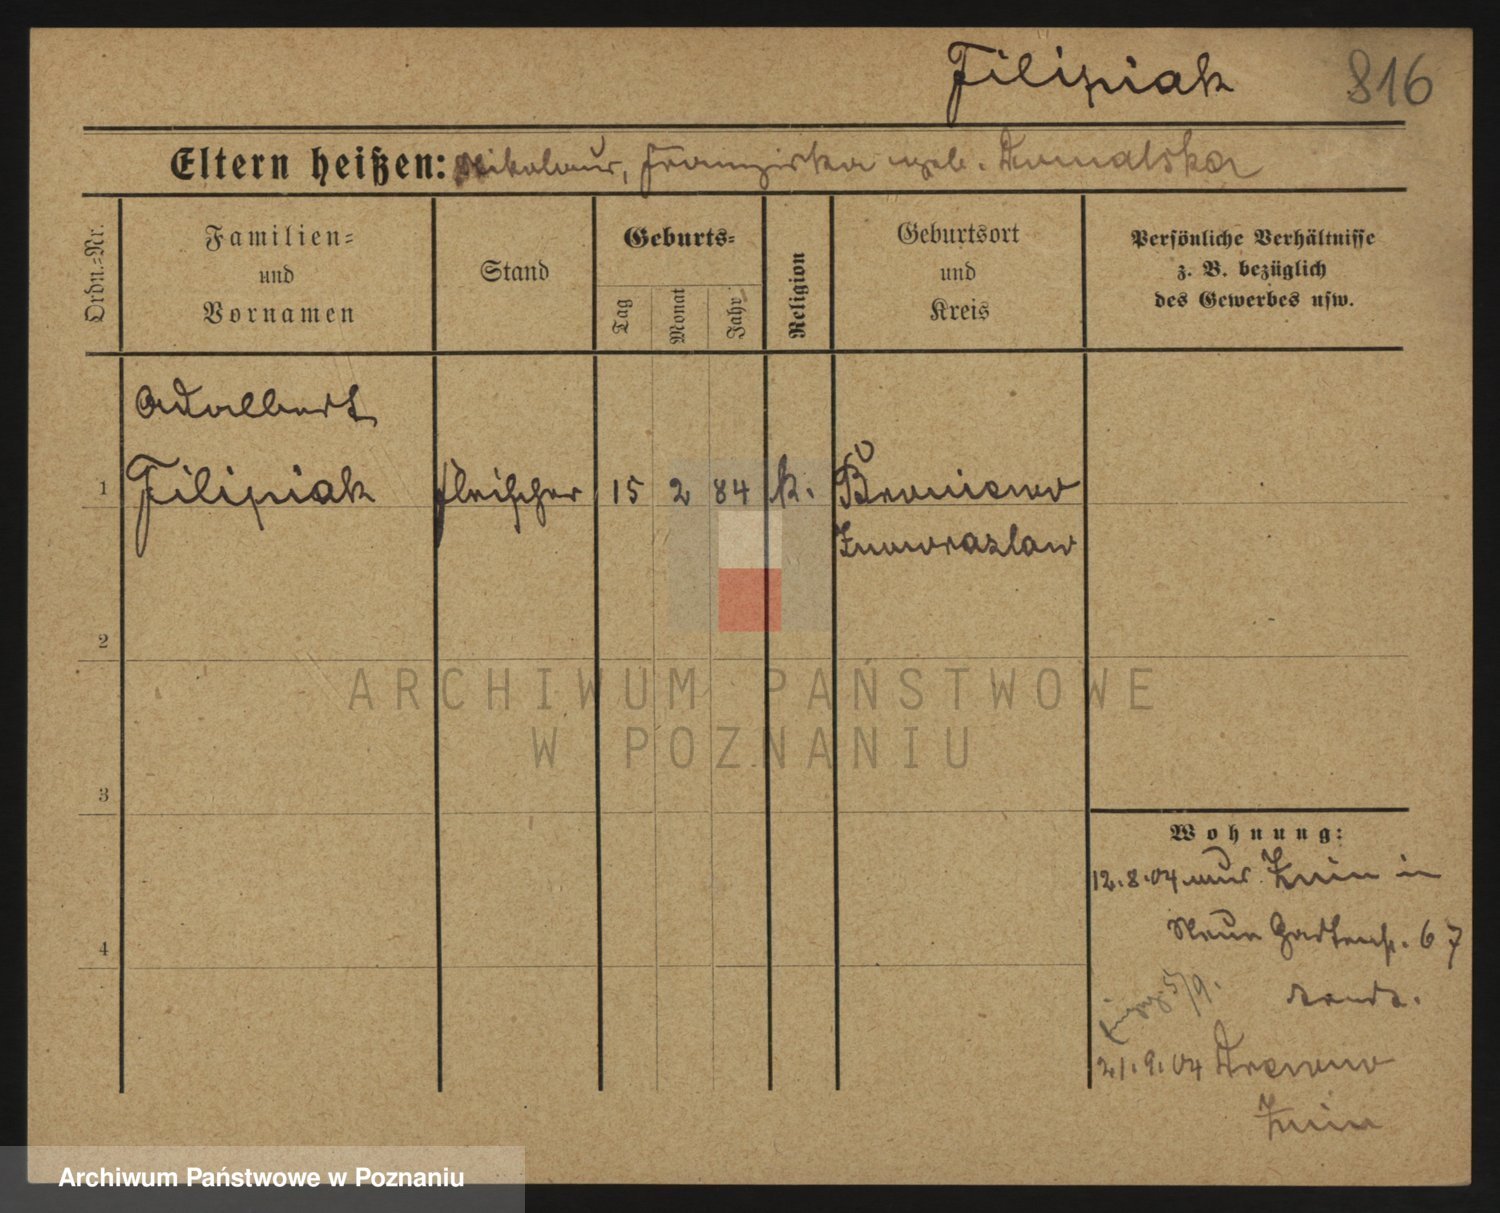 Filipiak 816
Eltern heißen: Nikolaus, Franziska geb.
Ordn.-Nr.
Familien-
und
Vornamen
Stand
Geburts-
Tag
Monat
Jahr
Religion
Geburtsort
und
Kreis
Persönliche Verhältnisse
z. B. bezüglich
des Gewerbes usw.
Adalbert
1 Filipiak Fleischer 15 2 84 k. Broniewo
Inowrazlaw
2
ARCHIWUM PAŃSTWOWE
W POZNANIU
3
Wohnung:
12.8.04 Znin in
Neue Gartenstr. 67
4
5/9.
21.9.04
Znin
Archiwum Państwowe w Poznaniu